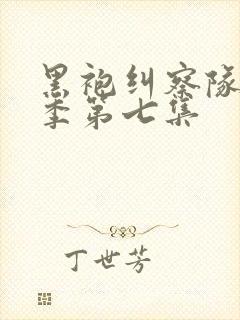 黑袍纠察队
季第七集
丁世芳